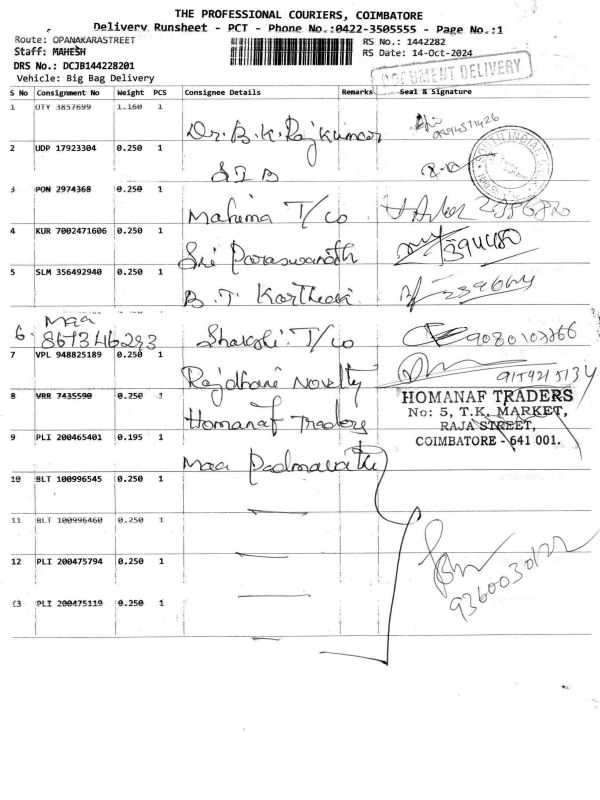 THE PROFESSIONAL COURIERS, COIMBATORE
Delivery Runsheet - PCT - Phone No.:0422-3505555 - Page No.:1
Route: OPANAKARASTREET
RS No.: 1442282
Staff: MAHESH
RS Date: 14-Oct-2024
DRS No.: DCJB144228201
Vehicle: Big Bag Delivery
DOCUMENT DELIVERY
S No Consignment No Weight PCS Consignee Details Remarks Seal & Signature
1 OTY 3857699 1.160 1 Dr. B. K. Rajkumar
2 UDP 17923304 0.250 1 SIB
SOUTH INDIAN
3 PON 2974368 0.250 1 Mahima T/co
4 KUR 7002471606 0.250 1 Sri Paraswanath 394480
5 SLM 356492940 0.250 1 B. T.
6. Maa 867346293 T/co
7 VPL 948825189 0.250 1 Rajdhani Novelty
8 VRR 7435590 0.250 1 Homanaf Traders
HOMANAF TRADERS
No: 5, T.K. MARKET,
RAJA STREET,
COIMBATORE - 641 001.
9 PLI 200465401 0.195 1 Maa Padmavathi
10 BLT 100996545 0.250 1
11 BLT 100996460 0.250 1
12 PLI 200475794 0.250 1
13 PLI 200475119 0.250 1
9360030122